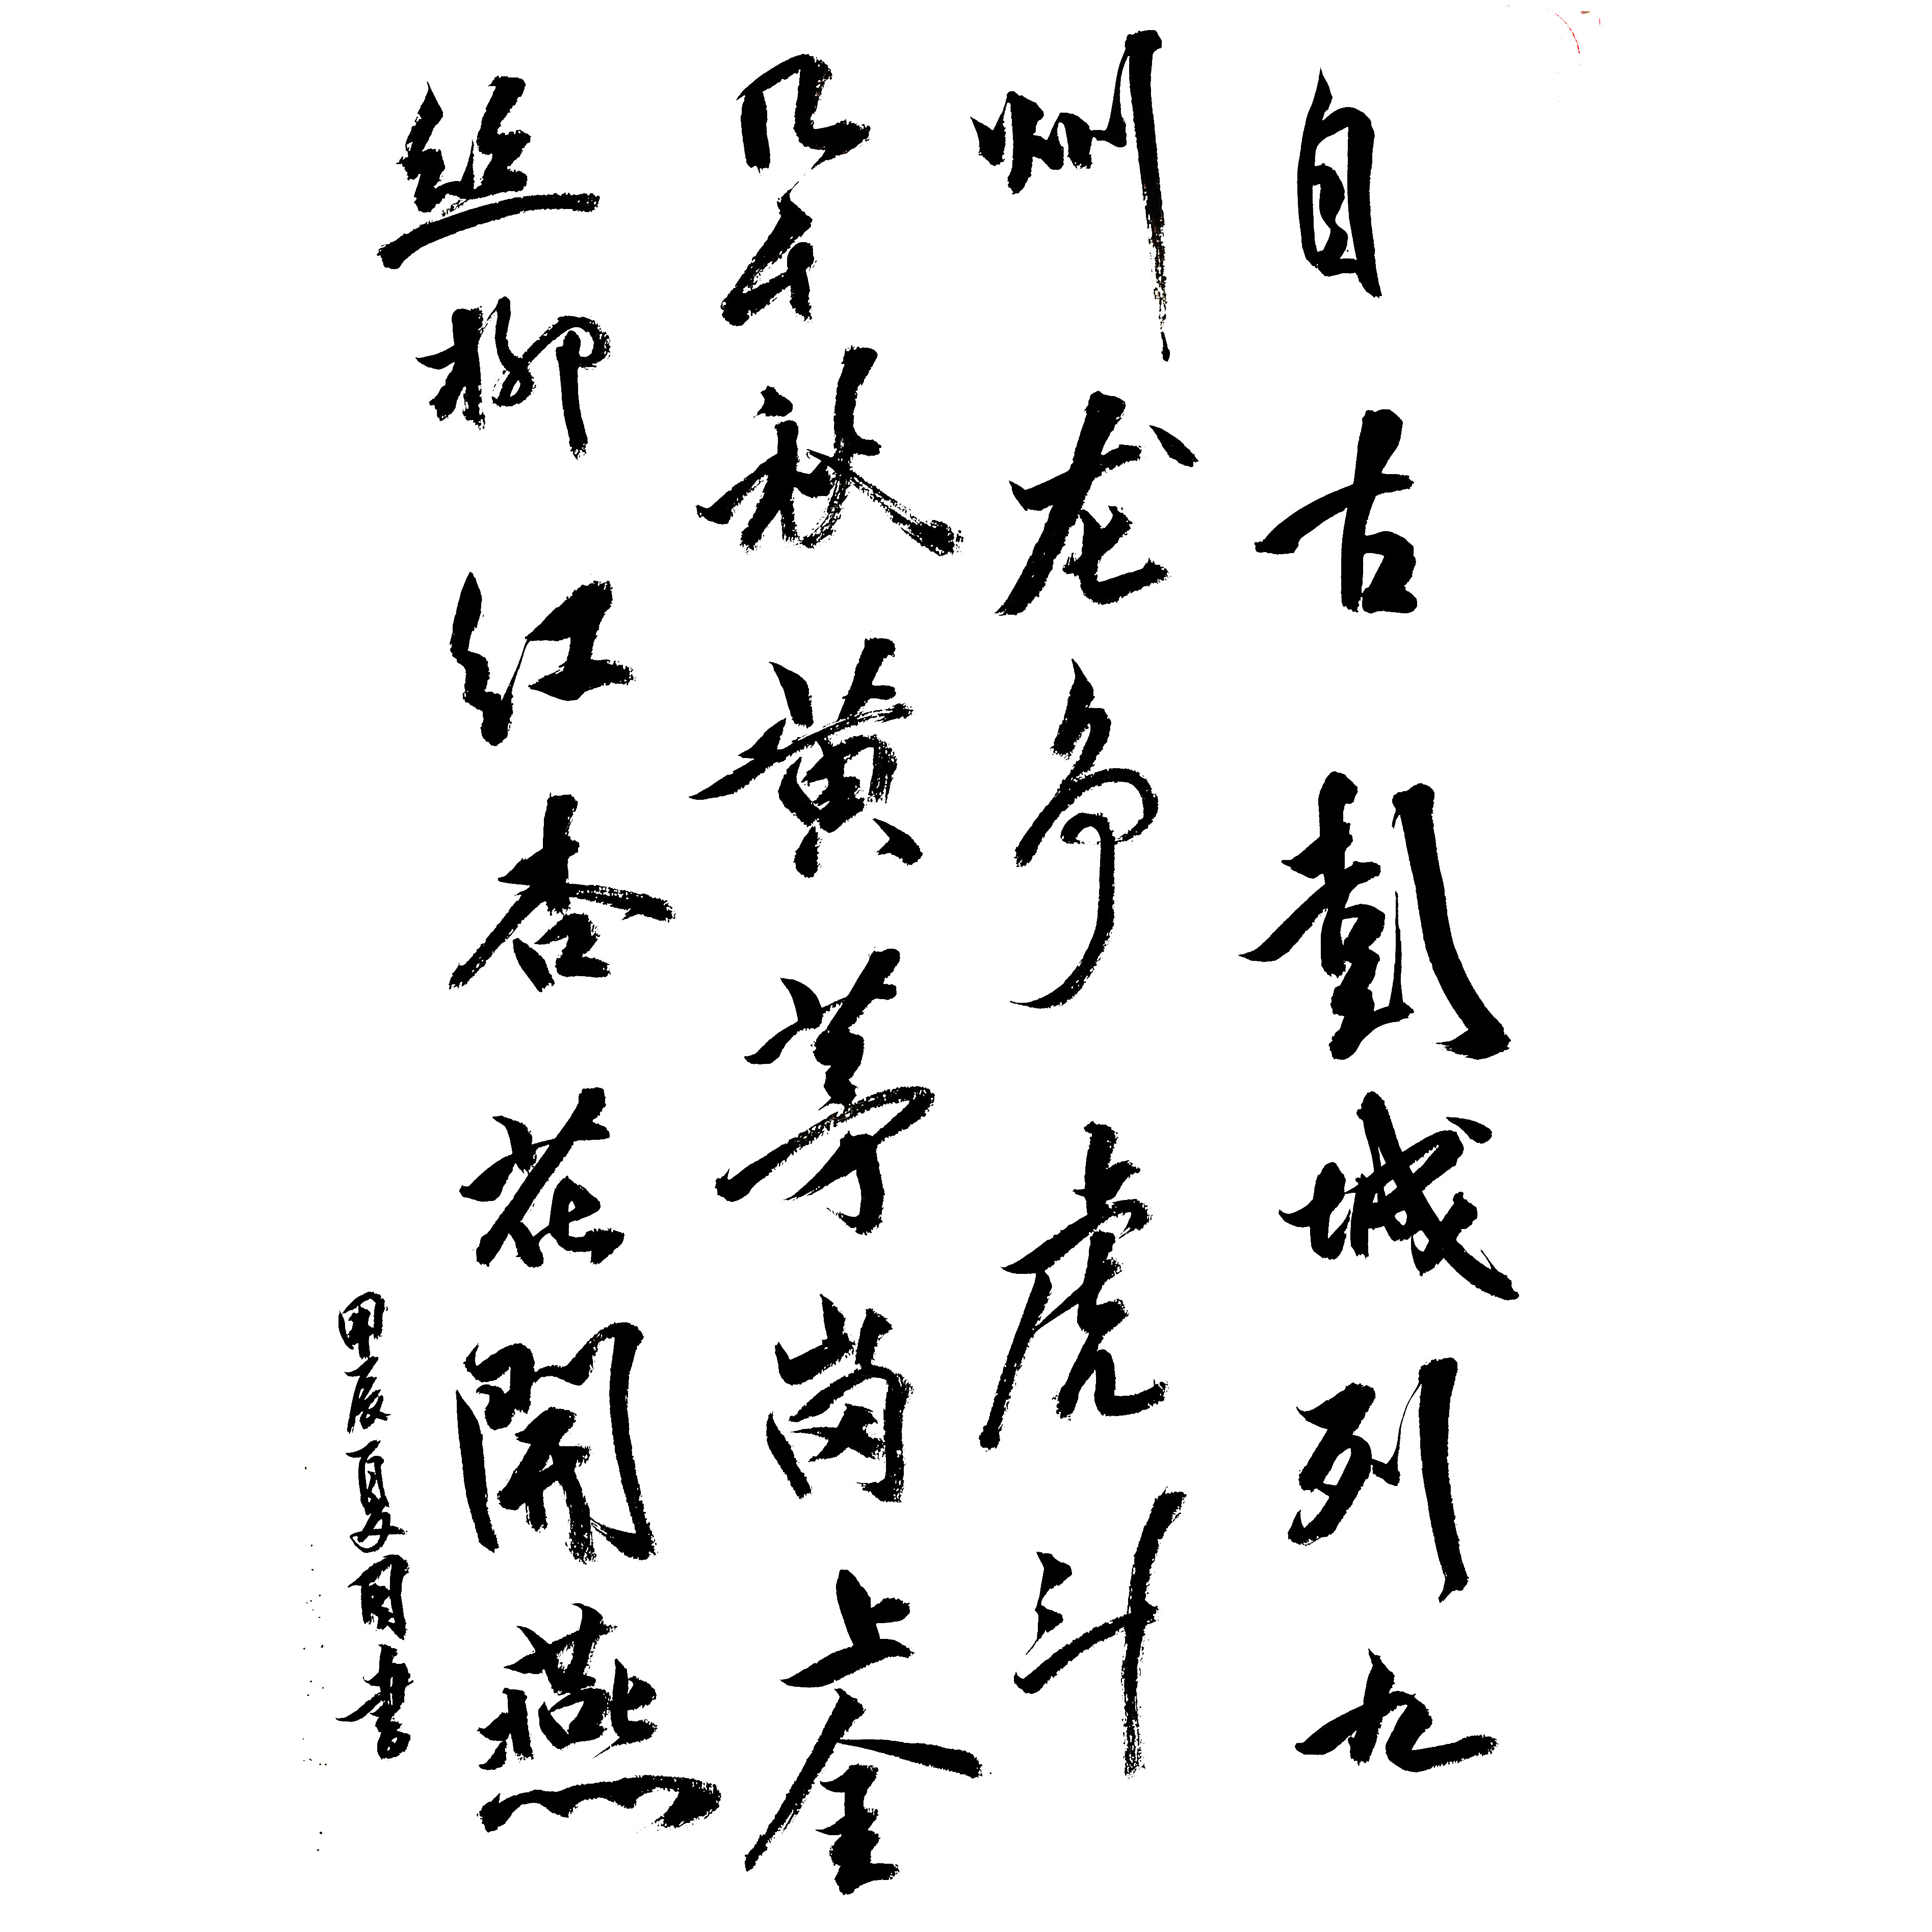 自古彭城列九
州龙争虎斗
几春秋黄茅岗上金
丝柳红杏花開燕
甲辰夏月書